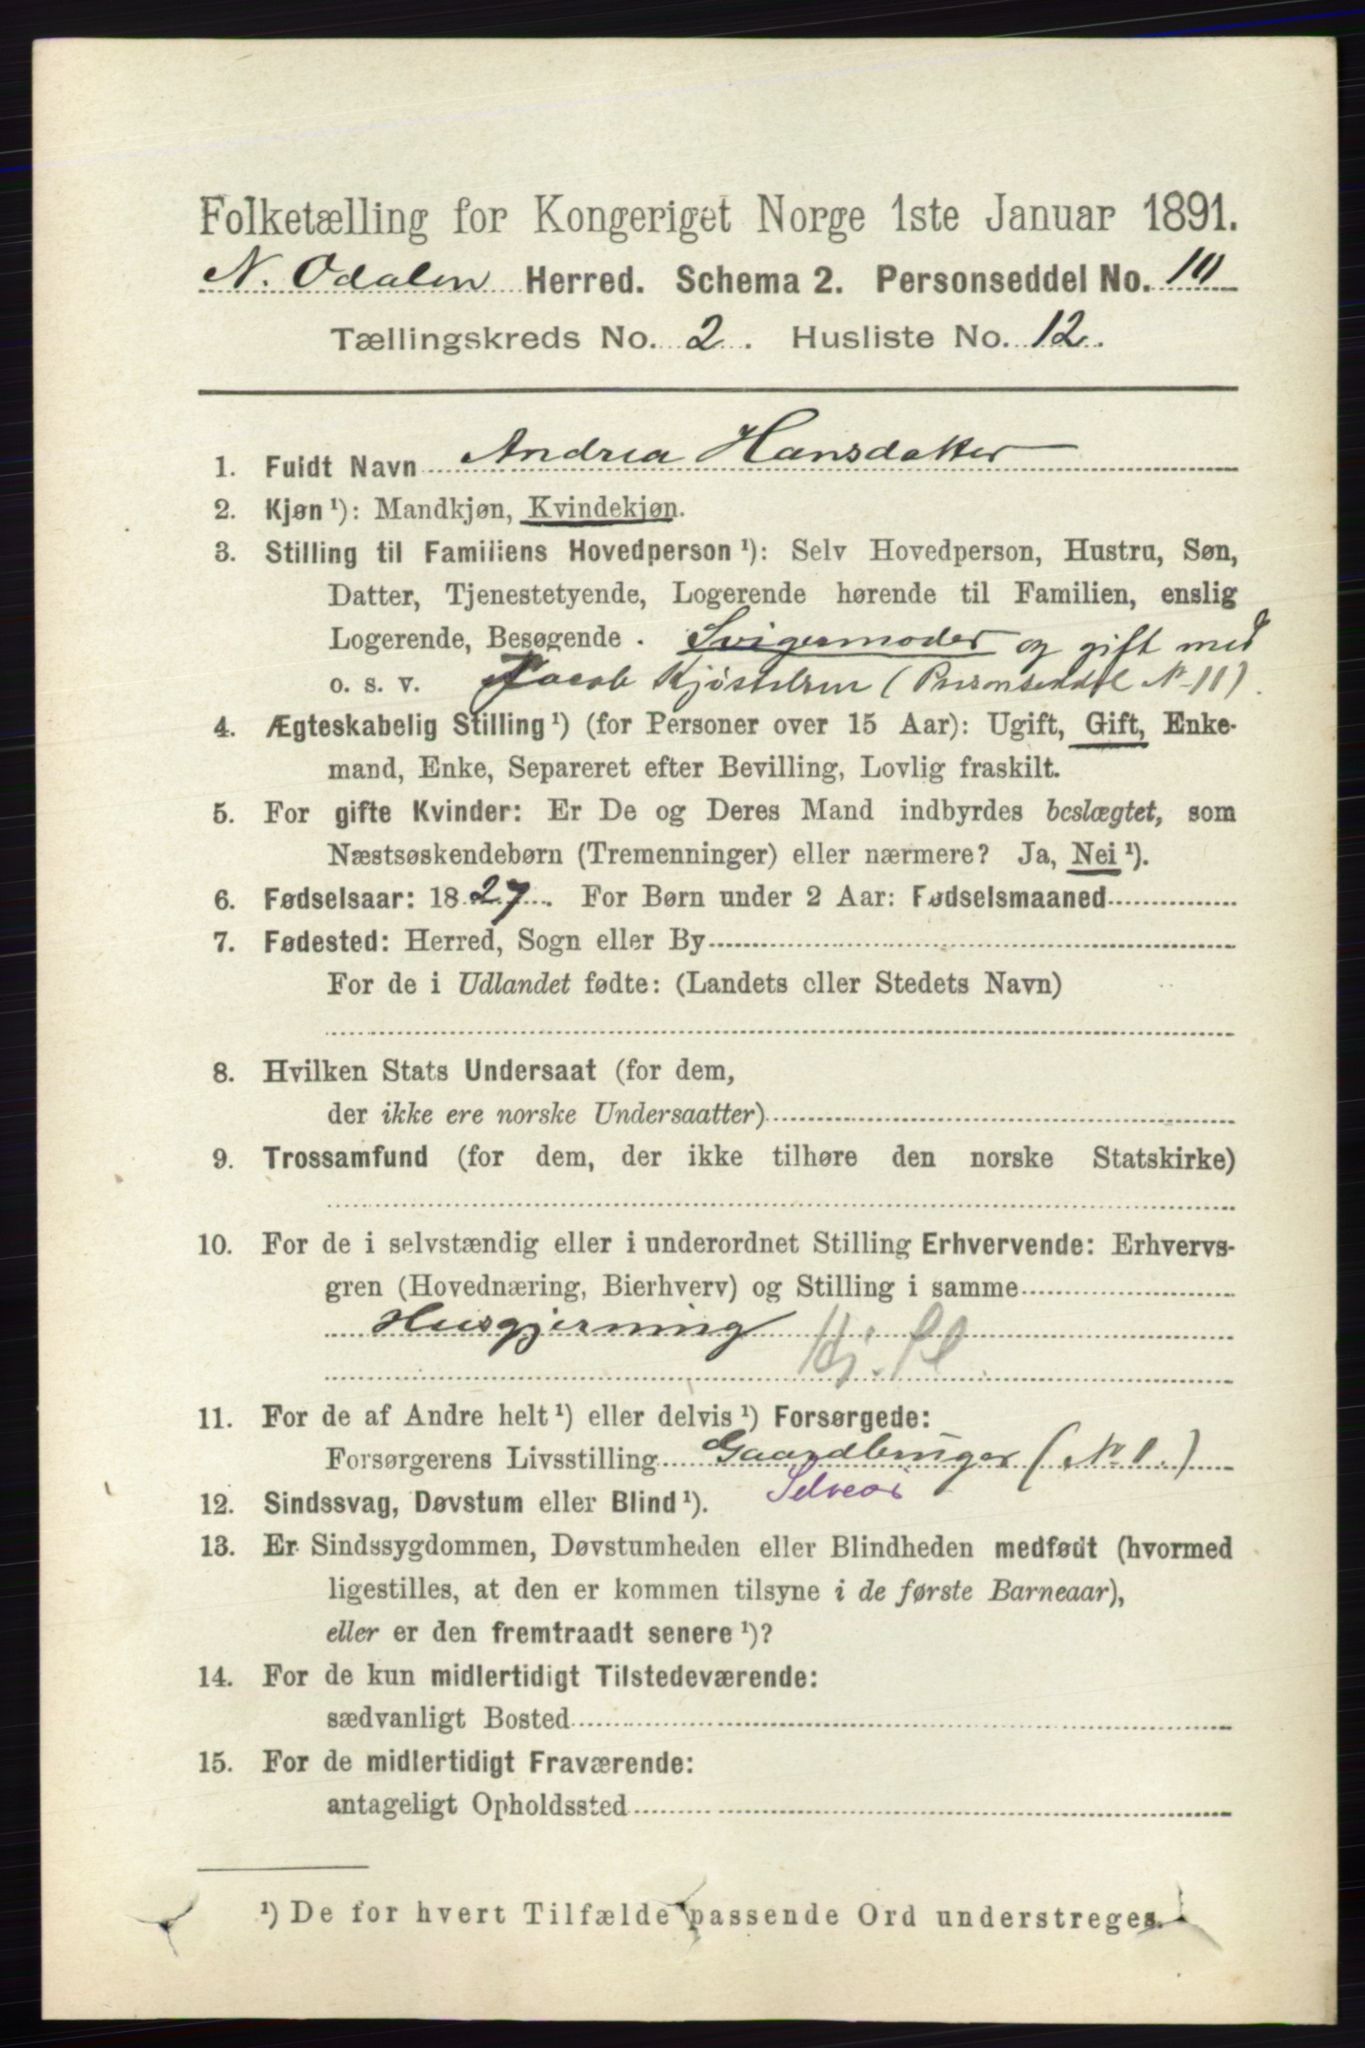 Folketælling for Kongeriget Norge 1ste Januar 1891.
N. Odalen Herred. Schema 2. Personseddel No. 10
Tællingskreds No. 2. Husliste No. 12.
1. Fuldt Navn Andrea Hansdatter
2. Kjøn ¹): Mandkjøn, Kvindekjøn.
3. Stilling til Familiens Hovedperson ¹): Selv Hovedperson, Hustru, Søn,
Datter, Tjenestetyende, Logerende hørende til Familien, enslig
Logerende, Besøgende . Svigermoder og gift med
o. s. v. Jacob Kjøstelsen (Personseddel No 11).
4. Ægteskabelig Stilling ¹) (for Personer over 15 Aar): Ugift, Gift, Enke-
mand, Enke, Separeret efter Bevilling, Lovlig fraskilt.
5. For gifte Kvinder: Er De og Deres Mand indbyrdes beslægtet, som
Næstsøskendebørn (Tremenninger) eller nærmere? Ja, Nei ¹).
6. Fødselsaar: 1827. For Børn under 2 Aar: Fødselsmaaned
7. Fødested: Herred, Sogn eller By
For de i Udlandet fødte: (Landets eller Stedets Navn)
8. Hvilken Stats Undersaat (for dem,
der ikke ere norske Undersaatter)
9. Trossamfund (for dem, der ikke tilhøre den norske Statskirke)
10. For de i selvstændig eller i underordnet Stilling Erhvervende: Erhvervs-
gren (Hovednæring, Bierhverv) og Stilling i samme
Husgjerning
11. For de af Andre helt ¹) eller delvis ¹) Forsørgede:
Forsørgerens Livsstilling Gaardbruger (No 1.)
Selveier
12. Sindssvag, Døvstum eller Blind ¹).
13. Er Sindssygdommen, Døvstumheden eller Blindheden medfødt (hvormed
ligestilles, at den er kommen tilsyne i de første Barneaar),
eller er den fremtraadt senere ¹)?
14. For de kun midlertidigt Tilstedeværende:
sædvanligt Bosted
15. For de midlertidigt Fraværende:
antageligt Opholdssted
¹) De for hvert Tilfælde passende Ord understreges.